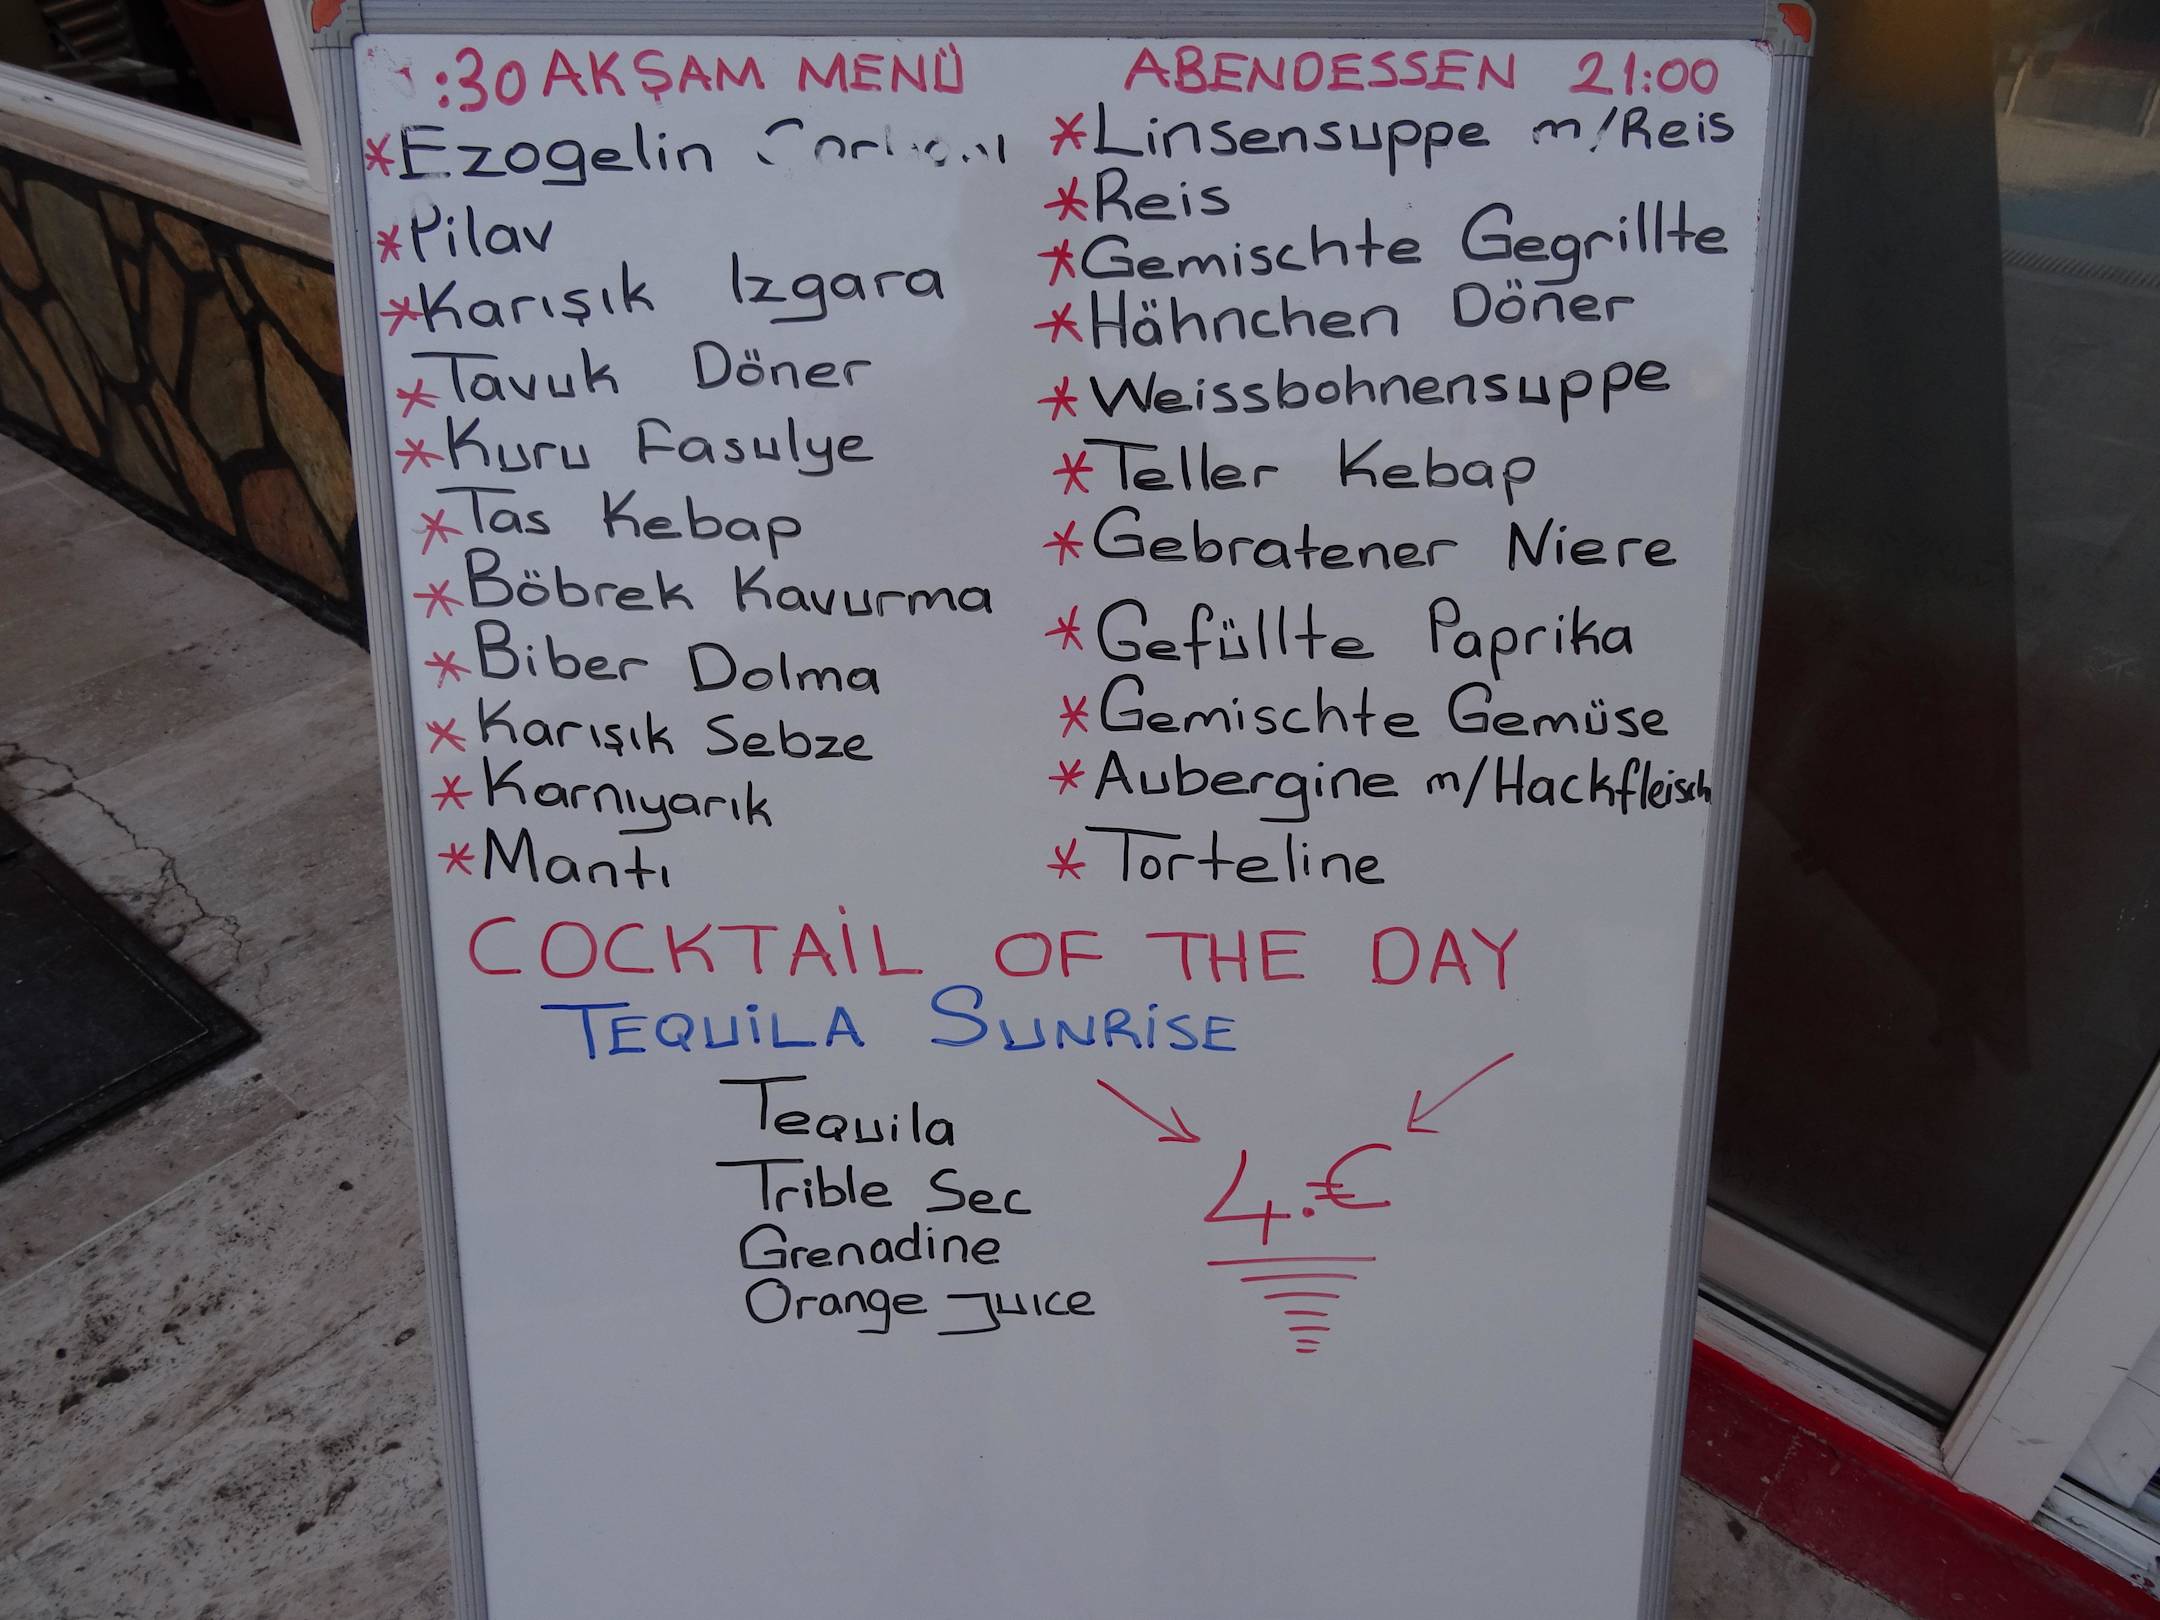 :30 AKŞAM MENÜ
*Ezogelin
*Pilav
*Karışık Izgara
*Tavuk Döner
*Kuru Fasulye
*Tas Kebap
*Böbrek Kavurma
*Biber Dolma
*Karışık Sebze
*Karnıyarık
*Mantı
ABENDESSEN 21:00
*Linsensuppe m/Reis
*Reis
*Gemischte Gegrillte
*Hähnchen Döner
*Weissbohnensuppe
*Teller Kebap
*Gebratener Niere
*Gefüllte Paprika
*Gemischte Gemüse
*Aubergine m/Hackfleisch
*Torteline
COCKTAİL OF THE DAY
TEQUİLA SUNRİSE
Tequila
Trible Sec
Grenadine
Orange Juıce
4.€